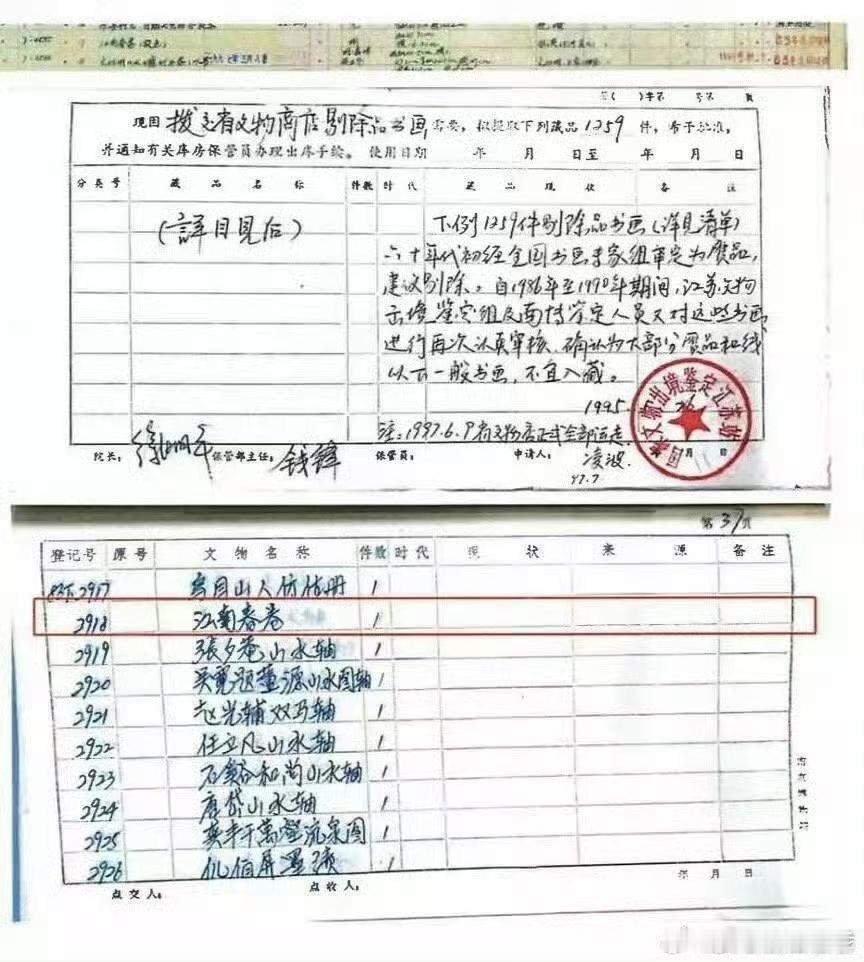 江南春卷
字第 号第 页
现因 拨交省文物商店剔除品书画 需要，拟提取下列藏品 1259 件，希予批准。
并通知有关库房保管员办理出库手续。 使用日期 年 月 日至 年 月 日
分类号 藏品名称 件数 时代 藏品现状 备注
（詳目見后）
下例1259件剔除品书画（详见清单）
六十年代初经全国书画专家组审定为贋品，
建议剔除。自1986年至1990年期间，江苏文物
出境鉴定组及南博鉴定人员又对这些书画
进行再次认真审核，确认为大部分贋品和线
以下一般书画，不宜入藏。
1995
注：1997.6.9省文物店正式全部运走
国家文物出境鉴定江苏站
月 日
院长： 保管部主任： 钱锋 保管员： 申请人： 凌波
97.7
第37页
登记号 原号 文物名称 件数 时代 现状 来源 备注
2917 乌目山人仿古册 1
2918 江南春卷 1
2919 張夕庵山水轴 1
2920 吴寛题董源山水图轴 1
2921 赵光辅双马轴 1
2922 任立凡山水轴 1
2923 石谿和尚山水轴 1
2924 唐岱山水轴 1
2925 流泉图 1
2926 1
点交人： 点收人： 年 月 日